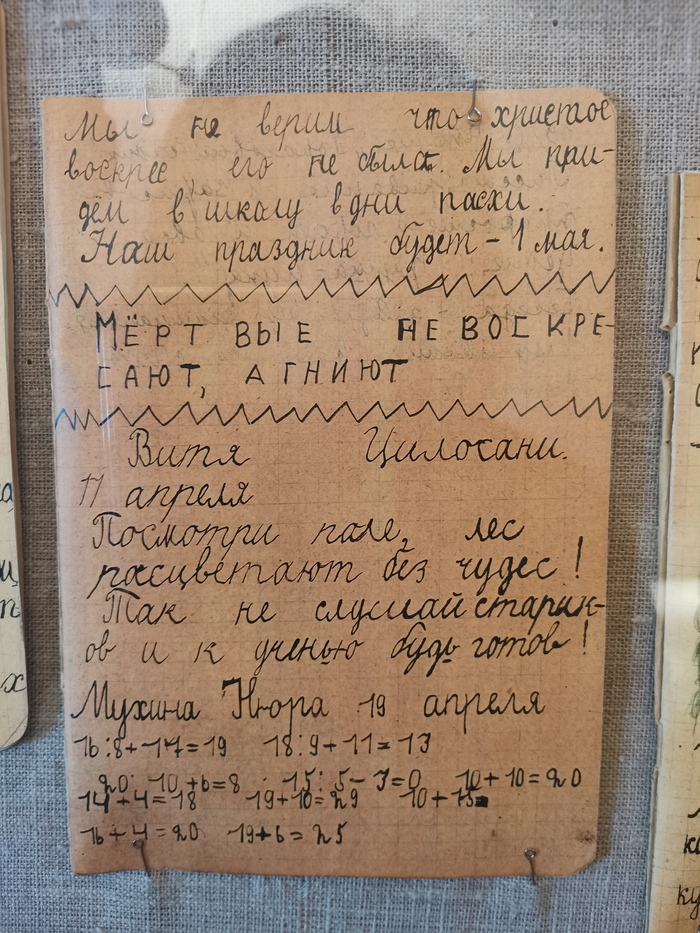 Мы не верим что христос
воскрес, его не было. Мы при-
дём в школу в дни пасхи.
Наш праздник будет - 1 мая.
МЁРТ ВЫЕ НЕ ВОСКРЕ-
САЮТ, А ГНИЮТ
Витя Цилосани.
11 апреля
Посмотри поле, лес
расцветают без чудес!
Так не слушай старик-
ов и к ученью будь готов!
Мухина Нюра 19 апреля
16:8+17=19 18:9+11=13
20:10+6=8 15:5-3=0 10+10=20
14+4=18 19+10=29 10+15=
16+4=20 19+6=25